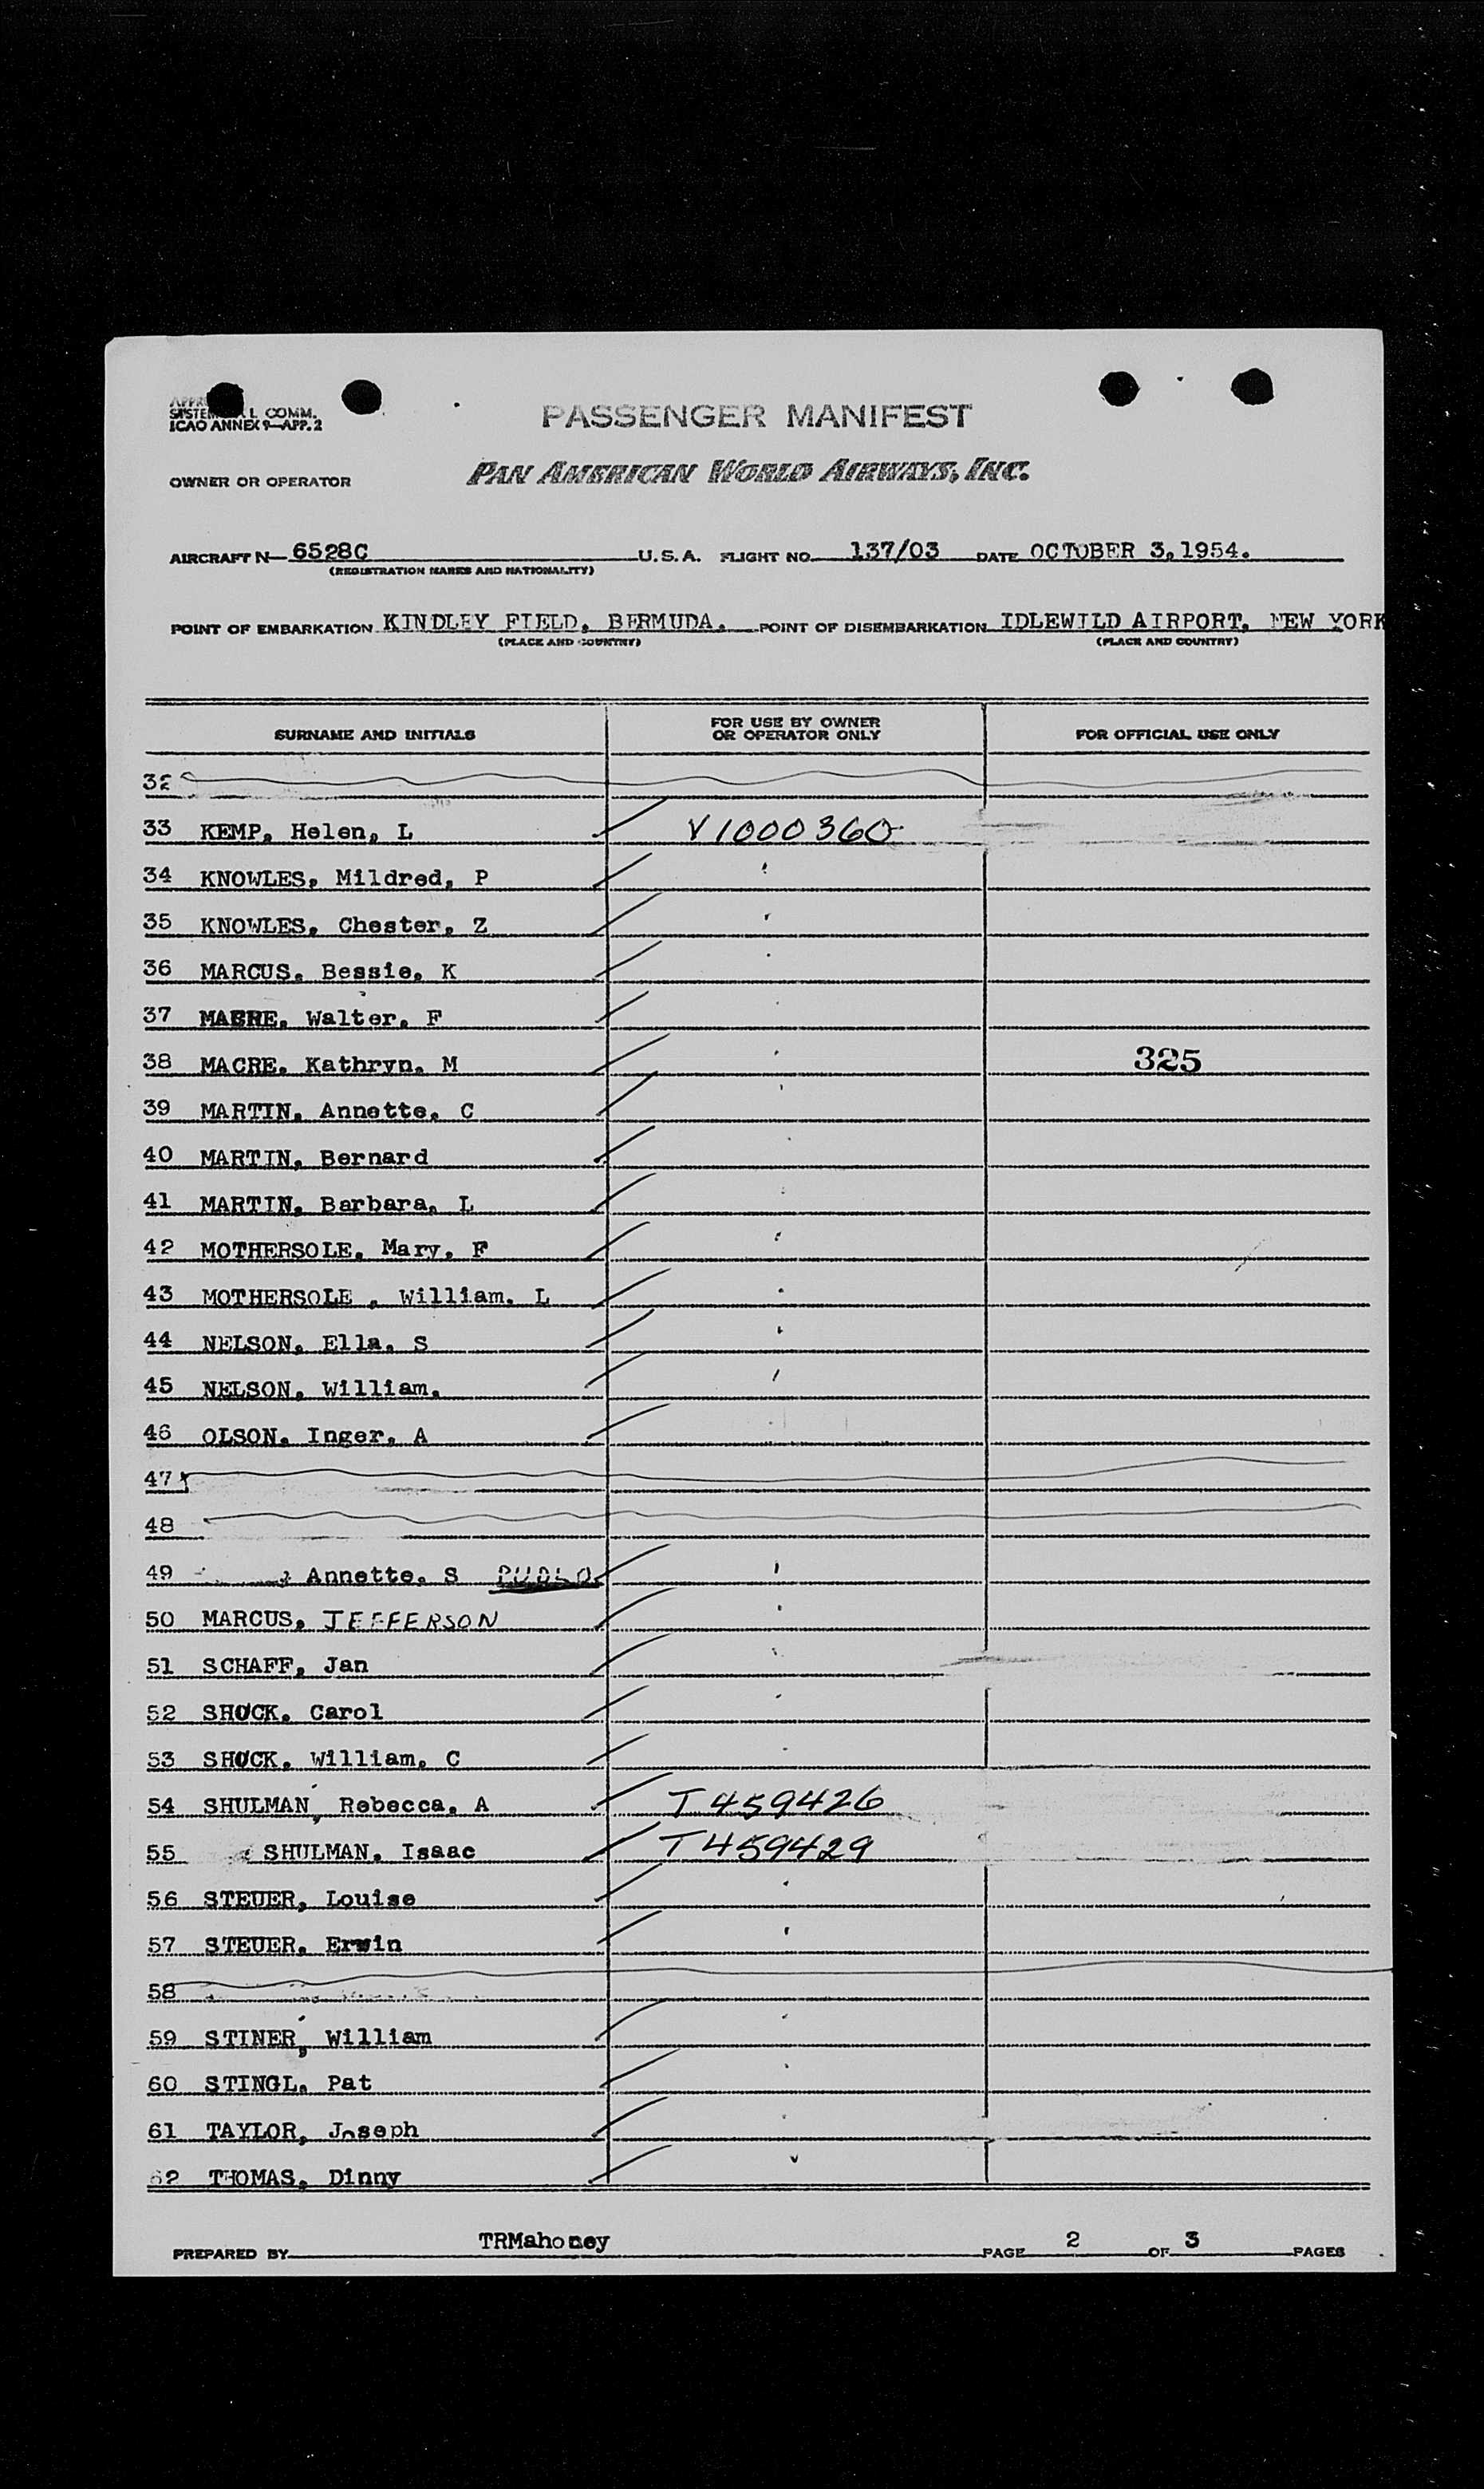 SYSTEM L COMM.
ICAO ANNEX 9—APP. 2
PASSENGER MANIFEST
OWNER OR OPERATOR PAN AMERICAN WORLD AIRWAYS, INC.
AIRCRAFT N— 6528C U.S.A. FLIGHT NO. 137/03 DATE OCTOBER 3, 1954.
(REGISTRATION MARKS AND NATIONALITY)
POINT OF EMBARKATION KINDLEY FIELD, BERMUDA. POINT OF DISEMBARKATION IDLEWILD AIRPORT, NEW YORK
(PLACE AND COUNTRY) (PLACE AND COUNTRY)
SURNAME AND INITIALS FOR USE BY OWNER OR OPERATOR ONLY FOR OFFICIAL USE ONLY
32
33 KEMP, Helen, L V1000360
34 KNOWLES, Mildred, P
35 KNOWLES, Chester, Z
36 MARCUS, Bessie, K
37 MACRE, Walter, F
38 MACRE, Kathryn, M 325
39 MARTIN, Annette, C
40 MARTIN, Bernard
41 MARTIN, Barbara, L
42 MOTHERSOLE, Mary, F
43 MOTHERSOLE , William, L
44 NELSON, Ella, S
45 NELSON, William,
46 OLSON, Inger, A
47
48
49 Annette, S
50 MARCUS, JEFFERSON
51 SCHAFF, Jan
52 SHUCK, Carol
53 SHUCK, William, C
54 SHULMAN, Rebecca, A T459426
55 SHULMAN, Isaac T459429
56 STEUER, Louise
57 STEUER, Erwin
58
59 STINER, William
60 STINGL, Pat
61 TAYLOR, Joseph
62 THOMAS, Dinny
PREPARED BY TRMahoney PAGE 2 OF 3 PAGES